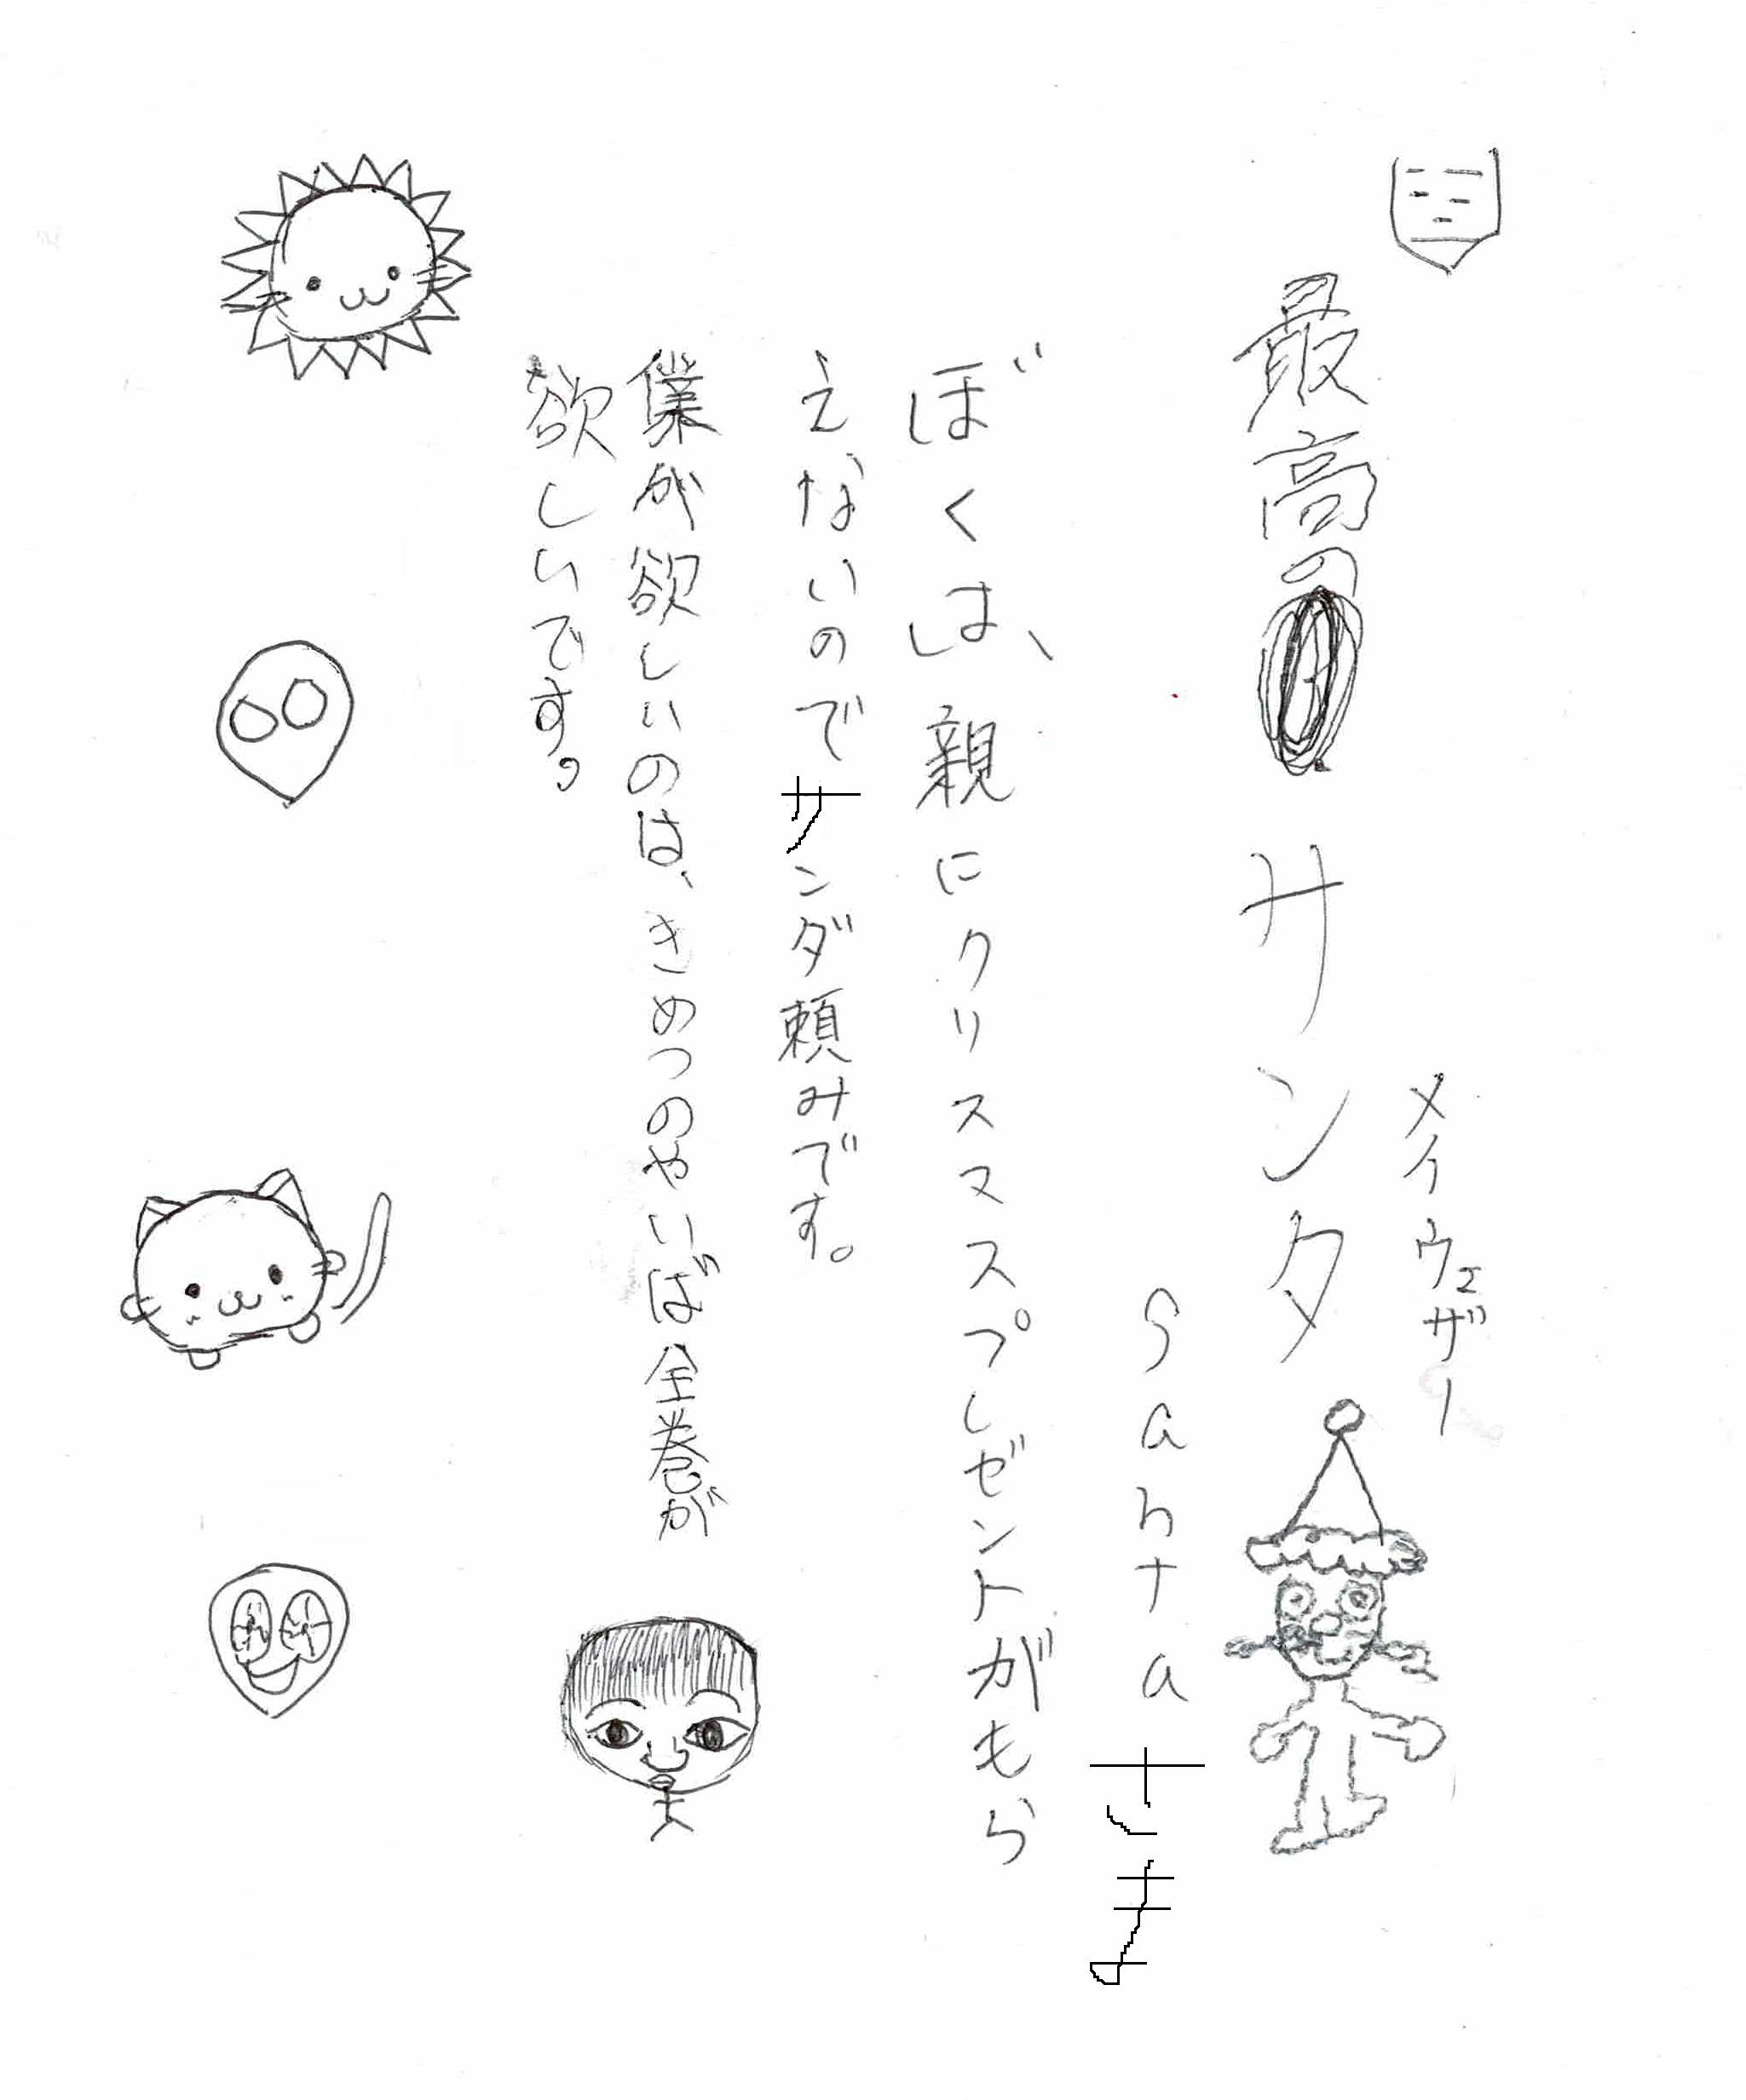 最高の
サンタ
メイウェザー
Santa
さま
ぼくは、親にクリスマスプレゼントがもら
えないのでサンダ頼みです。
僕が欲しいのは、きめつのやいば全巻が
欲しいです。